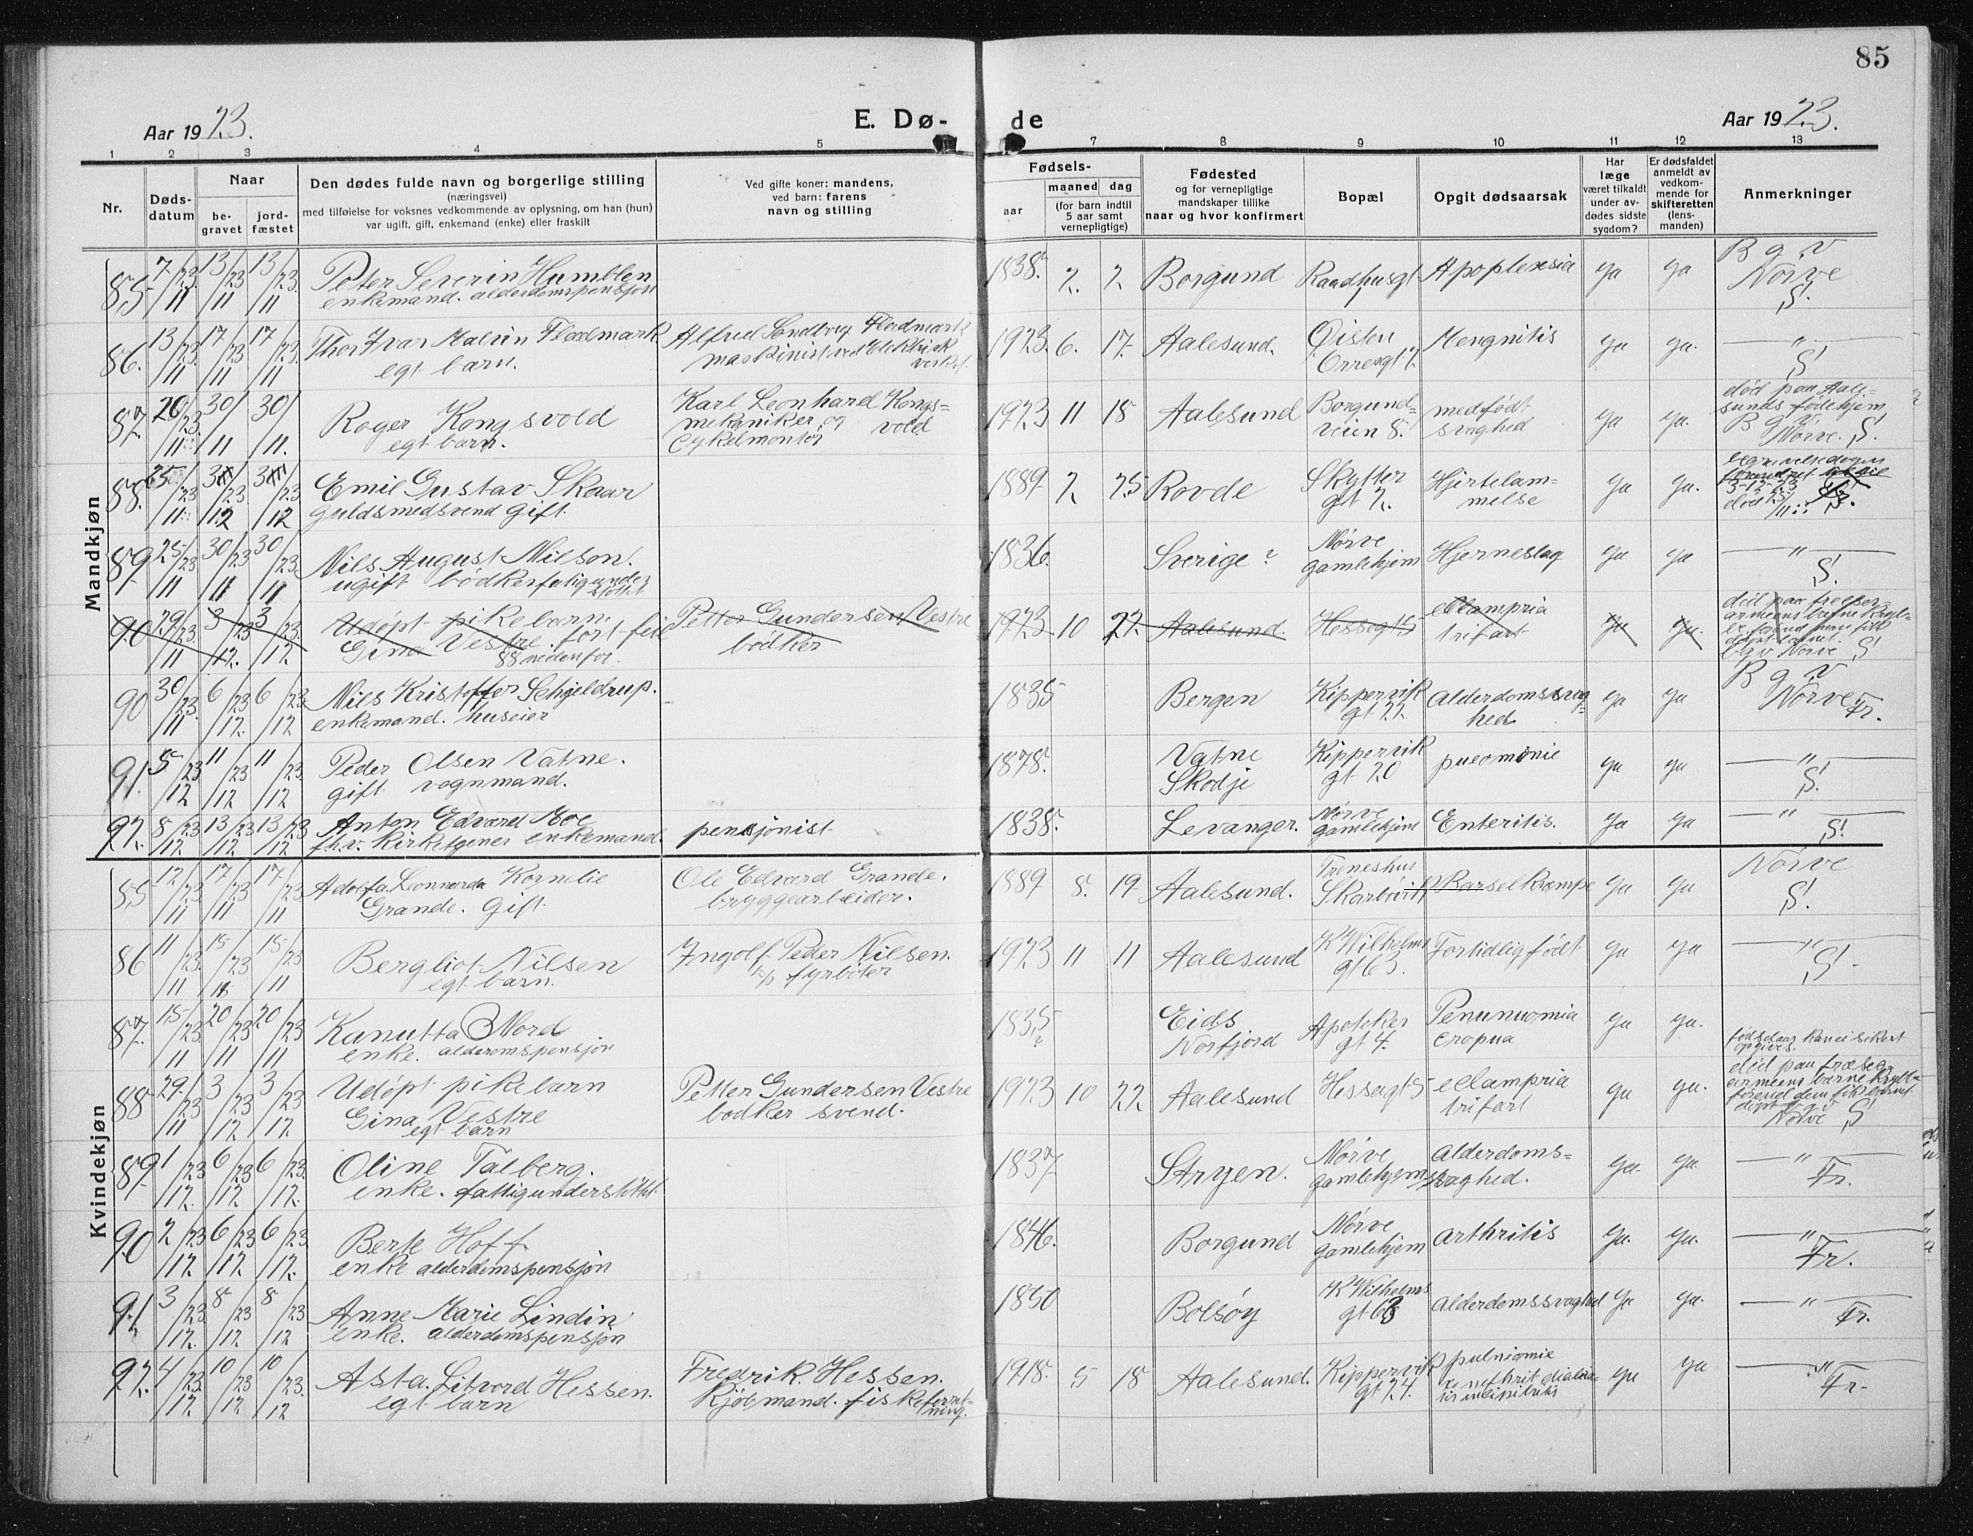 85
Aar 1923.
E. Dø-
de
Aar 1923.
1 2 3 4 5 7 8 9 10 11 12 13
Nr.
Døds-
datum
Naar
be-
gravet
jord-
fæstet
Den dødes fulde navn og borgerlige stilling
(næringsvei)
med tilføielse for voksnes vedkommende av oplysning, om han (hun)
var ugift, gift, enkemand (enke) eller fraskilt
Ved gifte koner: mandens,
ved barn: farens
navn og stilling
Fødsels-
aar
maaned
dag
(for barn indtil
5 aar samt
vernepligtige)
Fødested
og for vernepligtige
mandskaper tillike
naar og hvor konfirmert
Bopæl
Opgit dødsaarsak
Har
læge
været tilkaldt
under av-
dødes sidste
sygdom?
Er dødsfaldet
anmeldt av
vedkom-
mende for
skifteretten
(lens-
manden)
Anmerkninger
Mandkjøn
85 7/11 23 13/11 23 13/11 23 Peter Severin Humblen 1838. 2. 2 Borgund Raadhusgt Apoplexia ja ja B g v
enkemand. alderdomspensjon Nørve
S!
86. 13/11 23 17/11 23 17/11 23 Thor Ivar Flademark Alfred Flademark 1923. 6. 17. Aalesund. Øisten Mengnitis ja ja. — " —
egt barn. maskinist ved Elektrisk Orresgt 2 S!
verket.
87. 26/11 23 30/11 30/11. Roger Kongsvold Karl Leonhard Kongs= 1923 11 18 Aalesund Borgund- medfødt ja ja. død paa Aale-
egt barn. mekaniker og vold veien 8. svaghed sunds fødehjem
Cykelmontør Nørve. S!
88. 25/11 23 3/12 23 3/12 23 Emil Gustav Skaar 1889 2 25 Rovde Skytter Hjertelam- ja ja.
Guldsmedsvend Gift. gt 2. melse
89. 25/11 23 30/11 23 30/11 23 Nils August Nilson. 1836. Sverige? Nørve Hjerneslag ja ja — " —
ugift bødker gamlehjem S!
90 29/11 23 3/12 23 3/12 23. Udøpt pikebarn. Petter Gundersen Vestre 1923 10 22. Aalesund. Hessagt 5 eclampria ja ja.
Gina Vestre. bødker trifart
88 nedenfor. bgv Nørve S!
90 30/11 23. 6/12 23 6/12 23 Nils Kristoffer Schjeldrup. 1835 Bergen Kippervik alderdomssvag ja ja B g v
enkemand. huseier gt 22. hed. Nørve Fr.
91. 5/12 23 11/12 23 11/12 23. Peder Olsen Vatne. 1878. Vatne Kippervik pueomonie ja ja — " —
gift vognmand. Skodje gt 20 S!
92. 8/12 23 13/12 23 13/12 23 Anton Edvard Moe pensjonist 1838. Levanger. Nørve Enteritis. Ja Ja — " —
f.h.v. Kirketgener enkemand. gamlehjem S!
Kvindekjøn
85 12/11 23 17/11 23 17/11 23 Adolfa Leonnarda Kornelie Ole Edvard Grande. 1889 8. 19 Aalesund. Treneshus Barselkrampe ja ja Nørve
Grande. Gift bryggearbeider. S!
86 11/11 23 15/11 23 15/11 23 Bergliot Nilsen Ingolf Peder Nilsen. 1923 11 11 Aalesund K Wilhelms Fortidlig født ja ja — " —
egt barn. fyrbøter gt 63. S!
87. 15/11 23 20/11 23 20/11 23 Kanutta Nord 1835 Eids Apoteker Penunuomia ja ja.
enke. alderomspensjon ? Norfjord gt 4. cropua
88 29/11 23 3/12 23 3/12 23 Udøpt pikebarn Petter Gundersen Vestre 1923 10 22. Aalesund Hessagt 5 eclampria ja ja.
Gina Vestre bødker svend. trifart
egt barn Nørve S!
89. 1/12 23 6/12 23 6/12 23. Oline Talberg. 1837 Stryen. Nørve alderdoms= ja. ja. — " —
enke. fattigunderstøttet gamlehjem svaghed. Fr.
90 2/12 23 6/12 23 6/12 23. Berte Hoff. 1846. Borgund Nørve arthritis ja. ja. — " —
enke alderdomspensjon gamlehjem Fr.
91 3/12 23 8/12 23 8/12 23 Anne Marie Lindin 1850 Bolsøy K Wilhelms alderdomssvaghed ja ja. — " —
enke. alderdomspensjon gt 63 Fr.
92. 4/12 23 10/12 23 10/12 23. Asta Litvord Hessen. Fredrik Hessen. 1918. 5 18 Aalesund. Kippervik pulniomie ja ja — " —
egt barn Kjøbmand. fiskeforret- gt 24. Fr.
ning.